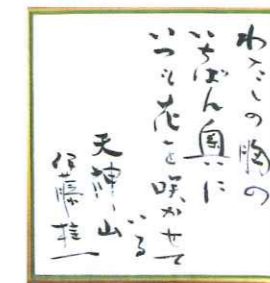 わたしの胸の
いちばん奥に
いつも花を咲かせて
いる
天神山
伊藤桂一